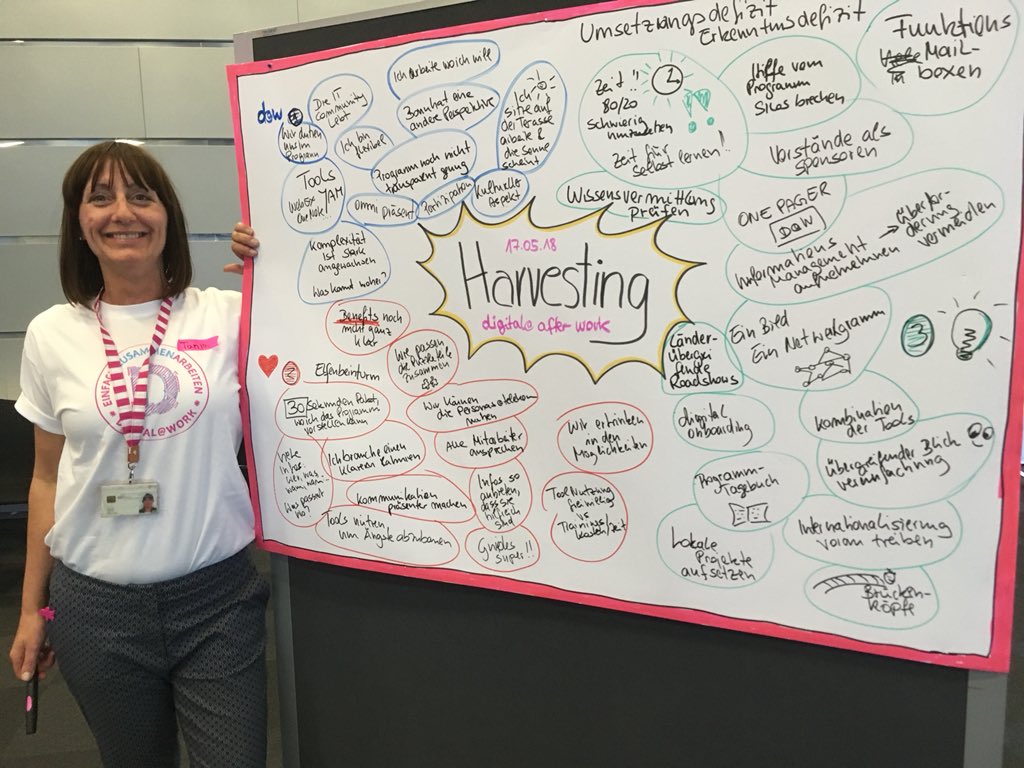 17.05.18
Harvesting
digital@ after work
dow
Wir dürfen
uns im
Programm
Die IT
Community
Lebt
Ich Arbeite wo ich will
Bonn hat eine
andere Perspektive
Ich
sitze auf
der Terasse
arbeite &
die Sonne
scheint
Ich bin
flexibel
Programm noch nicht
transparent genug
Tools
WebEx YAM
OneNote !!
omni Präsent
Partizipation
Kultureller
Aspekt
Komplexität
Ist stark
angewachsen
Was kommt woher?
Umsetzungsdefizit
Erkenntnisdefizit
Zeit !!
80/20
schwierig
umzusetzen
Zeit für
selbst lernen!
Hilfe vom
Programm
Silos brechen
Funktions
Mail-
boxen
Vorstände als
Sponsoren
Wissensvermittlung
Prüfen
ONE PAGER
DOW
Informations
Management
aufnehmen
überfor-
derung
vermeiden
Länder-
übergrei
fende
Roadshows
Ein Bild
Ein Netwialgramm
digital
onboarding
Kombination
der Tools
Programm-
Tagebuch
übergreifender Blick
vereinfachung
Lokale
Projekte
aufsetzen
Internationalisierung
voran treiben
Brücken-
köpfe
Benefits noch
nicht ganz
klar
Wie passen
die Puzzleteile
zusammen
Elfenbeinturm
30 sekunden Pitch,
wo ich das Programm
vorstellen kann
Wir können
die Personas
machen
Viele
Infos
Wer, was
wann,
Was passiert
wo?
Ich brauche einen
klaren Rahmen
Alle Mitarbeiter
ansprechen
Wir ertrinken
in den
Möglichkeiten
Kommunikation
präsenter machen
Infos so
anbieten,
dass sie
hilfreich
sind
Tool Nutzung
freiwillig
vs
Trainings
kosten/zeit
Tools nutzen,
um Ängste abzubauen
Guides
super!!
EINFACH ZUSAMMENARBEITEN
DIGITAL@WORK